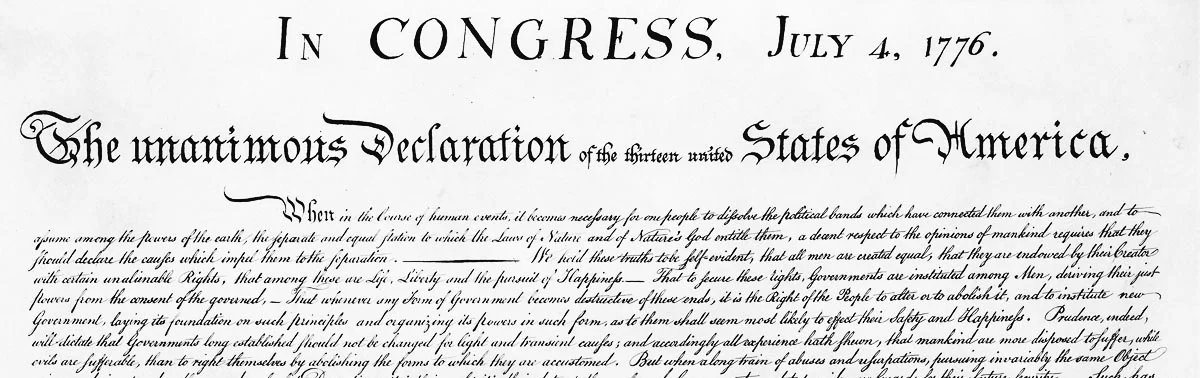 In CONGRESS, July 4, 1776.
The unanimous Declaration of the thirteen united States of America,
When in the Course of human events, it becomes necessary for one people to dissolve the political bands which have connected them with another, and to
assume among the powers of the earth, the separate and equal station to which the Laws of Nature and of Nature's God entitle them, a decent respect to the opinions of mankind requires that they
should declare the causes which impel them to the separation. ——— We hold these truths to be self-evident, that all men are created equal, that they are endowed by their Creator
with certain unalienable Rights, that among these are Life, Liberty and the pursuit of Happiness.— That to secure these rights, Governments are instituted among Men, deriving their just
powers from the consent of the governed, — That whenever any Form of Government becomes destructive of these ends, it is the Right of the People to alter or to abolish it, and to institute new
Government, laying its foundation on such principles and organizing its powers in such form, as to them shall seem most likely to effect their Safety and Happiness. Prudence, indeed,
will dictate that Governments long established should not be changed for light and transient causes; and accordingly all experience hath shewn, that mankind are more disposed to suffer, while
evils are sufferable, than to right themselves by abolishing the forms to which they are accustomed. But when a long train of abuses and usurpations, pursuing invariably the same Object